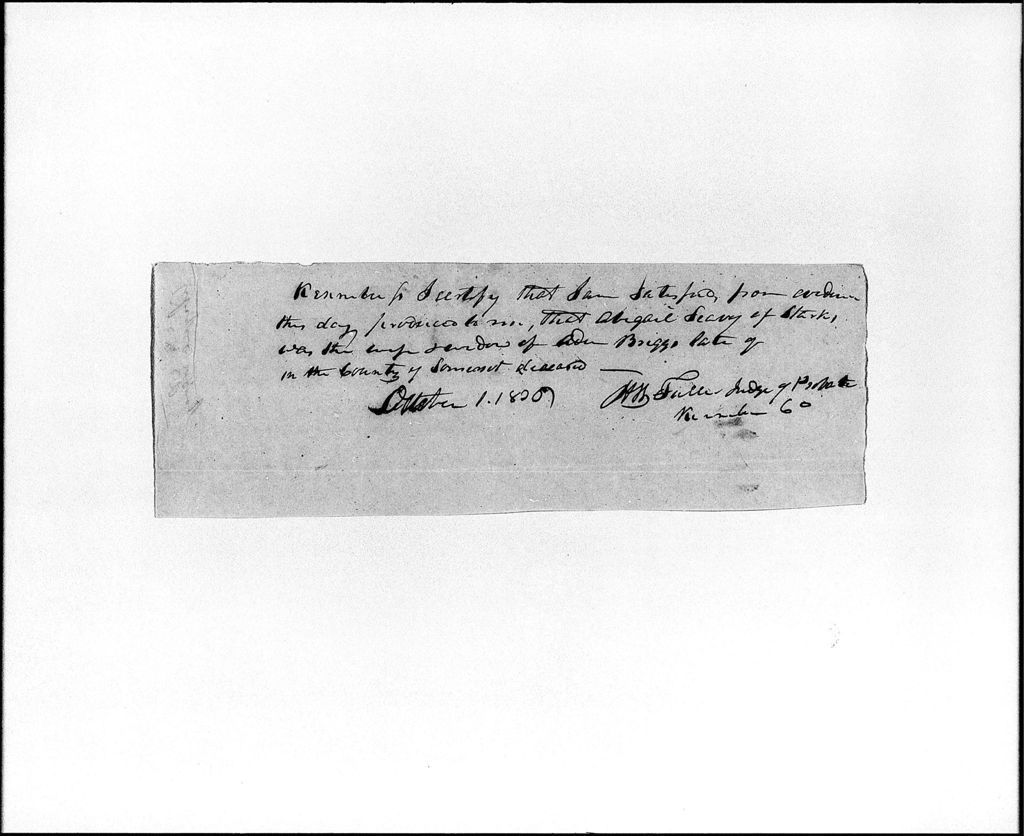 Kennebec ss I certify that I am satisfied, from evidence
this day produced to me, that Abigail Seavy of Starks,
was the wife & widow of Eden Briggs late of
in the County of Somerset deceased —
October 1. 1830
Fuller Judge of Probate
Kennebec Co